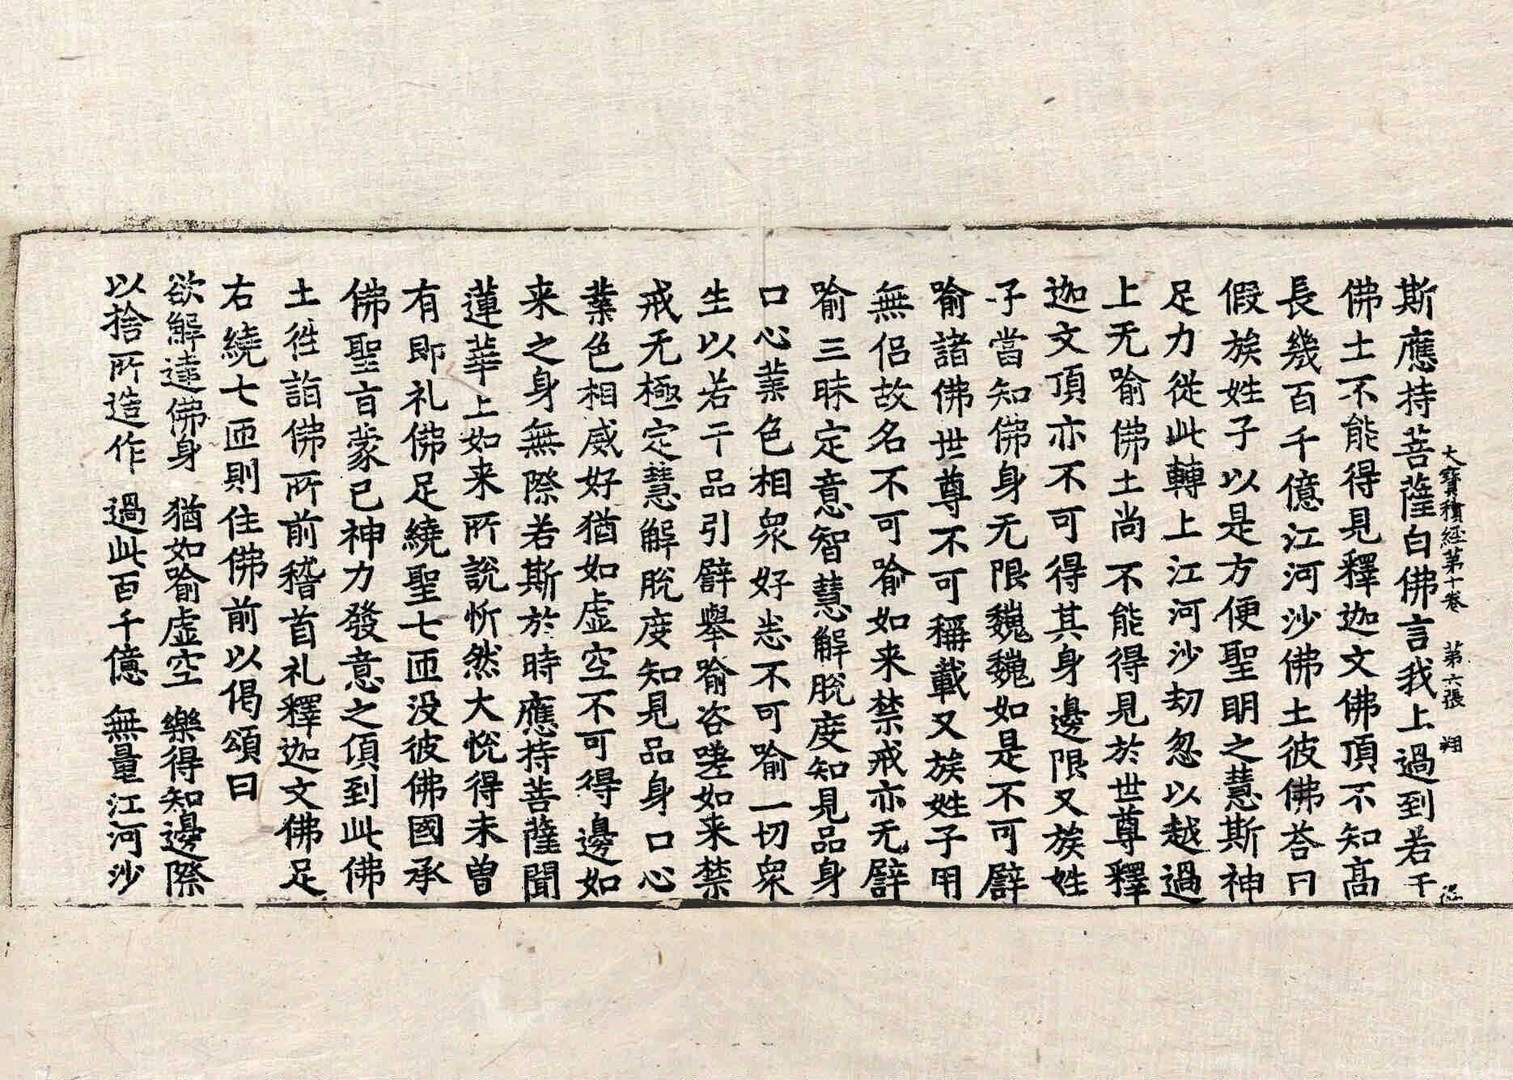 大寶積經第十卷 第六張 翔
斯應持菩薩白佛言我上過到若干
佛土不能得見釋迦文佛頂不知高
長幾百千億江河沙佛土彼佛荅曰
假族姓子以是方便聖明之慧斯神
足力從此轉上江河沙劫忽以越過
上无喻佛土尚不能得見於世尊釋
迦文頂亦不可得其身邊限又族姓
子當知佛身无限巍巍如是不可譬
喻諸佛世尊不可稱載又族姓子用
無侶故名不可喻如来禁戒亦无譬
喻三昧定意智慧解脫度知見品身
口心業色相衆好悉不可喻一切衆
生以若干品引譬舉喻咨嗟如来禁
戒无極定慧解脫度知見品身口心
業色相威好猶如虛空不可得邊如
来之身無際若斯於時應持菩薩聞
蓮華上如来所說忻然大悅得未曾
有即礼佛足繞聖七匝没彼佛國承
佛聖旨蒙已神力發意之頃到此佛
土往詣佛所前稽首礼釋迦文佛足
右繞七匝則住佛前以偈頌曰
欲解達佛身 猶如喻虛空 樂得知邊際
以捨所造作 過此百千億 無量江河沙